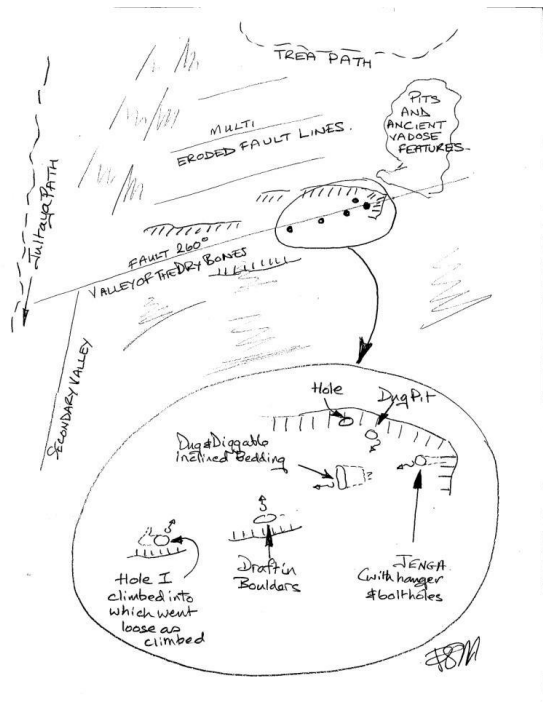 TREA PATH
PITS
AND
ANCIENT
VADOSE
FEATURES
MULTI
ERODED FAULT LINES.
Jultayu PATH
FAULT 260°
VALLEY OF THE DRY BONES
SECONDARY VALLEY
Hole
Dug Pit
Dug & Diggable
inclined Bedding
?
Hole I
climbed into
which went
loose as
climbed
Draft in
Boulders
JENGA
(with hanger
& boltholes